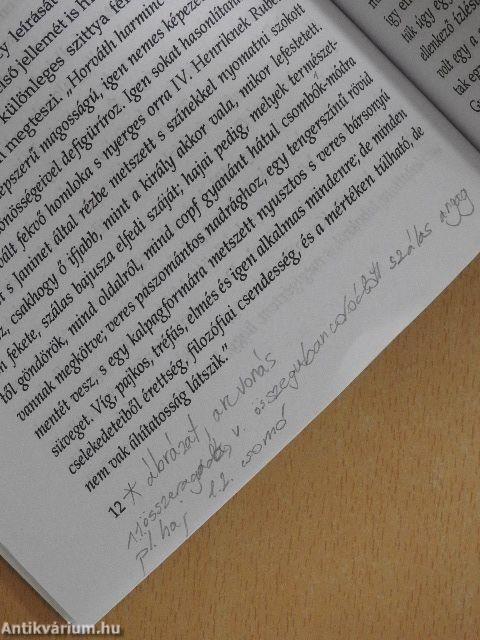 y leírását
első jellemét is h
különleges szittya fé
megteszi. „Horváth harminc
épszerű magosságú, igen nemes képeze
onösségével defigúríroz. Igen sokat hasonlítan
vált fekvő homloka s nyerges orra IV. Henriknek Rube
t s Janinet által rézbe metszett s színekkel nyomatni szokott
z, csakhogy ő ifjabb, mint a király akkor vala, mikor lefestetett.
n fekete, szálas bajusza elfedi száját; hajai pedig, melyek természet-
től göndörök, mind oldalról, mind copf gyanánt hátul csombók-módra
vannak megkötve; veres paszomántos nadrághoz, egy tengerszínű rövid
mentét vesz, s egy kalpagformára metszett nyusztos s veres bársonyú
süveget. Víg, pajkos, tréfás, elmés és igen alkalmas mindenre; de minden
cselekedeteiből érettség, filozófiai csendesség, és a mértéken túlható, de
nem vak áhítatosság látszik."
12 * ábrázat, arcvonás
összeragadás v. összegubancolódott szálas anyag
pl. haj 1.2. csomó
így en
tük így egé
elenkező ízlés
volt egy a
tak eg
G
Antikvárium.hu